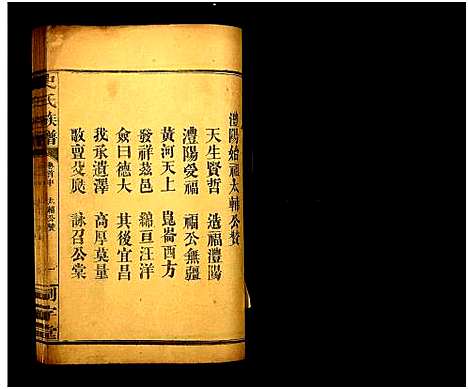 澧陽始祖太輔公贊
天生賢哲 造福澧陽
澧陽受福 福公無疆
黃河天上 崑崙西方
發祥茲邑 綿亘汪洋
僉曰德大 其後宜昌
我承遺澤 高厚莫量
敬 茇 詠召公棠
史氏族譜
卷首中 太輔公贊
一